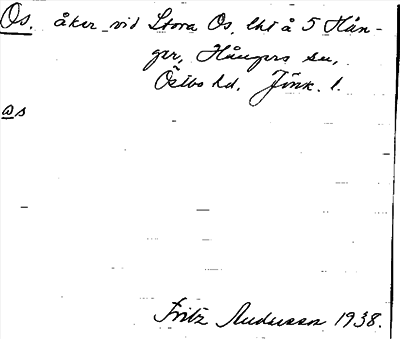 Os. åker vid Stora Os, lht å 5 Hån-
ger, Hångers sn,
Östbo hd. Jönk. l.
as
Fritz Andersson 1938.